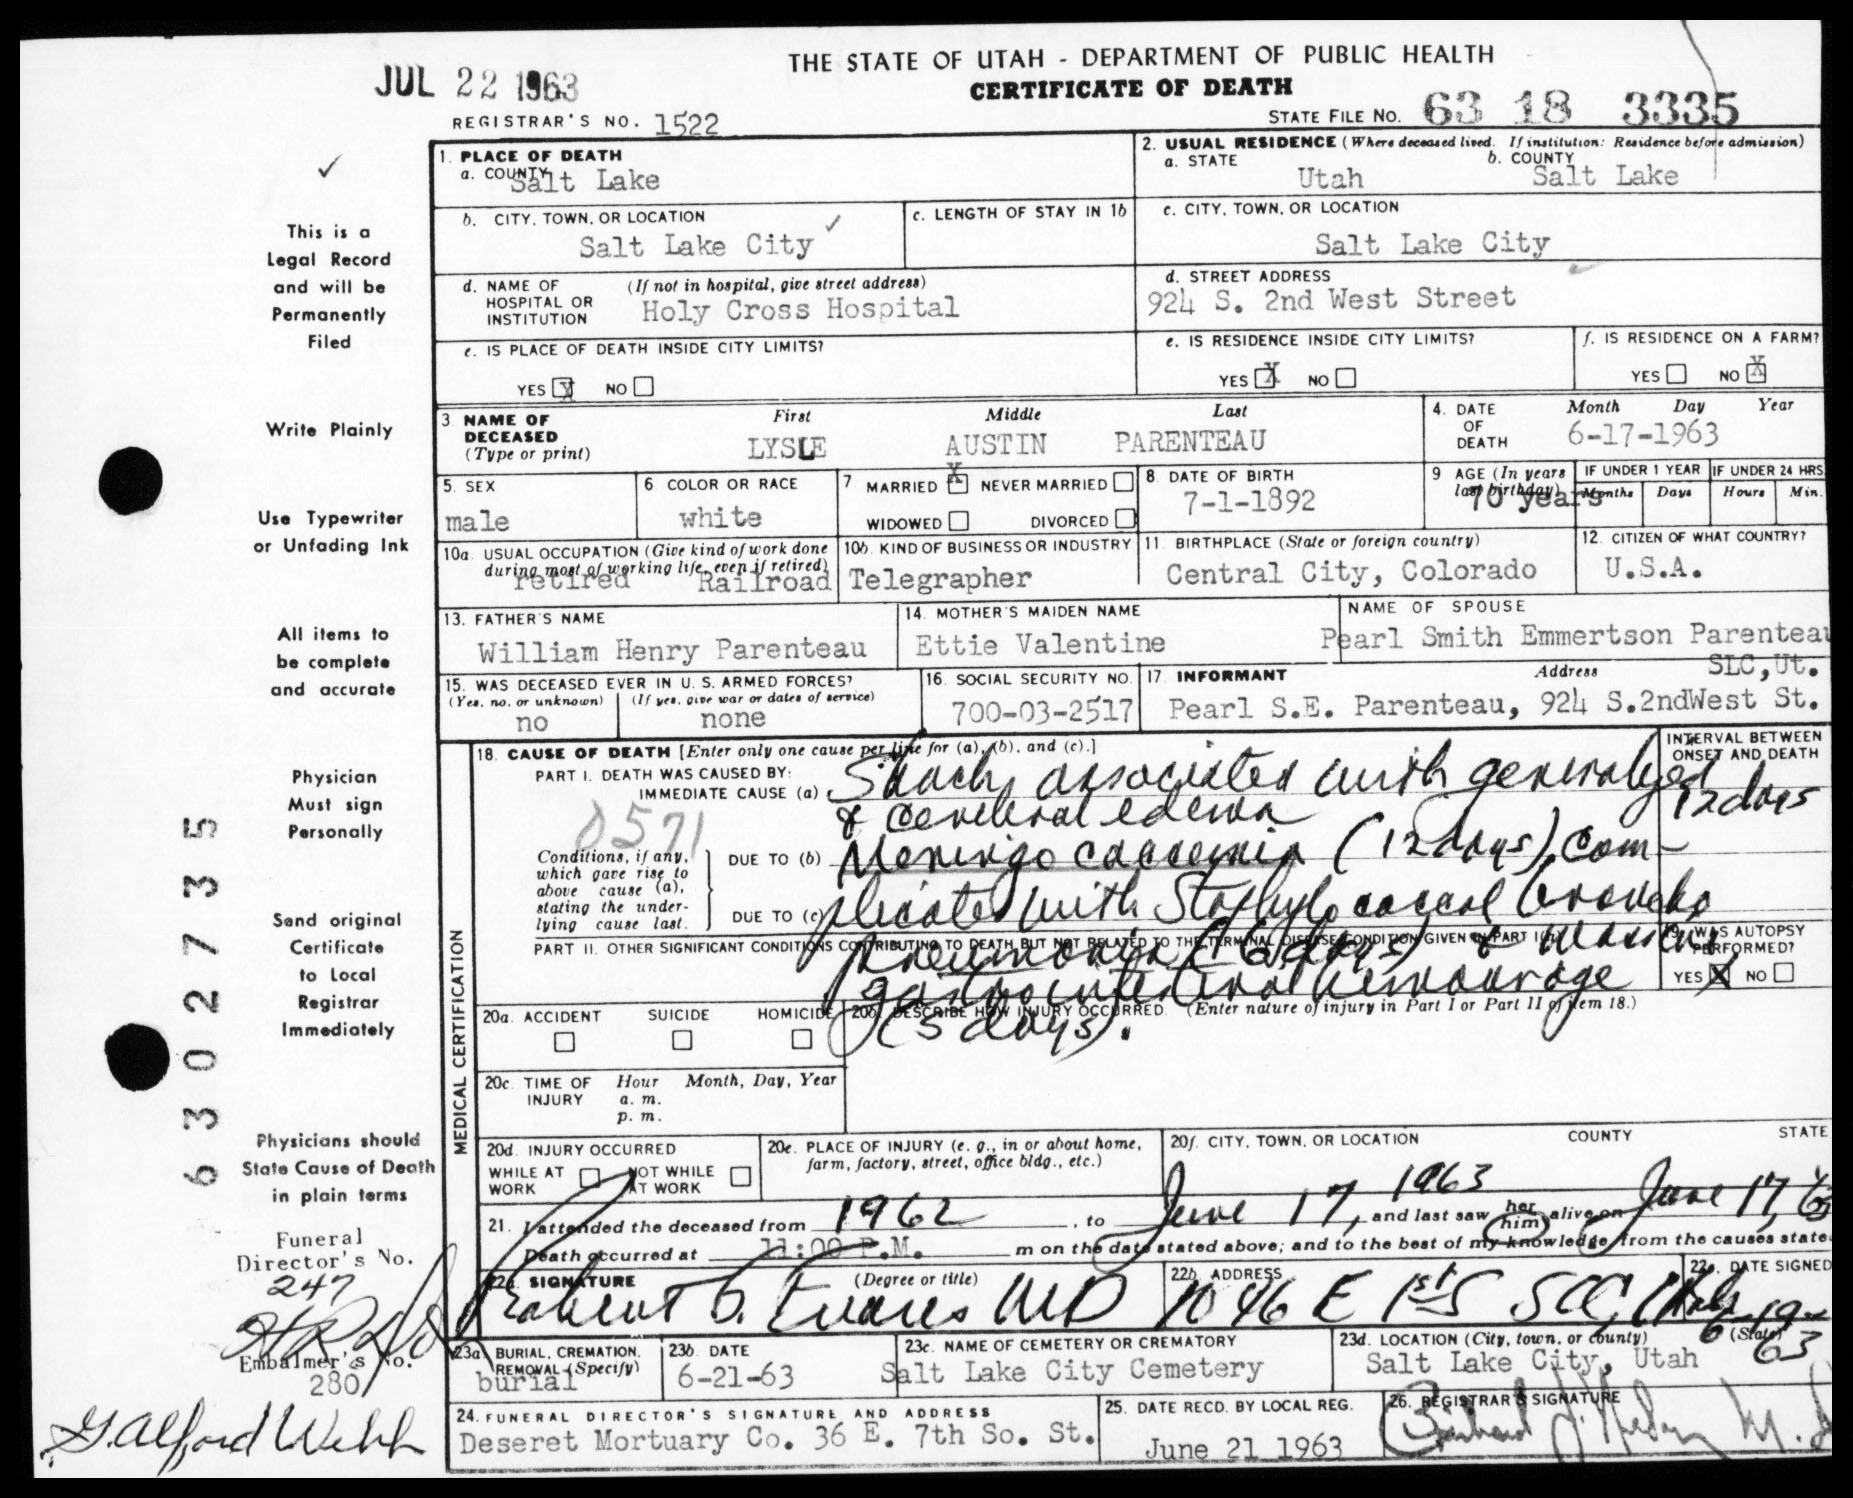 THE STATE OF UTAH - DEPARTMENT OF PUBLIC HEALTH
CERTIFICATE OF DEATH
JUL 22 1963
REGISTRAR'S NO. 1522
STATE FILE NO. 63 18 3335
This is a
Legal Record
and will be
Permanently
Filed
Write Plainly
Use Typewriter
or Unfading Ink
All items to
be complete
and accurate
Physician
Must sign
Personally
Send original
Certificate
to Local
Registrar
Immediately
Physicians should
State Cause of Death
in plain terms
Funeral
Director's No.
247
Embalmer's No.
280
G. Alford Webb
6302735
1. PLACE OF DEATH
a. COUNTY Salt Lake
2. USUAL RESIDENCE (Where deceased lived. If institution: Residence before admission)
a. STATE Utah b. COUNTY Salt Lake
b. CITY, TOWN, OR LOCATION Salt Lake City
c. LENGTH OF STAY IN 1b
c. CITY, TOWN, OR LOCATION Salt Lake City
d. NAME OF HOSPITAL OR INSTITUTION (If not in hospital, give street address) Holy Cross Hospital
d. STREET ADDRESS 924 S. 2nd West Street
e. IS PLACE OF DEATH INSIDE CITY LIMITS?
YES X NO
e. IS RESIDENCE INSIDE CITY LIMITS?
YES X NO
f. IS RESIDENCE ON A FARM?
YES NO X
3 NAME OF DECEASED (Type or print) First Middle Last
LYSLE AUSTIN PARENTEAU
4. DATE OF DEATH Month Day Year
6-17-1963
5. SEX male
6 COLOR OR RACE white
7 MARRIED X NEVER MARRIED
WIDOWED DIVORCED
8. DATE OF BIRTH 7-1-1892
9 AGE (In years last birthday) 70 years
IF UNDER 1 YEAR Months Days
IF UNDER 24 HRS. Hours Min.
10a. USUAL OCCUPATION (Give kind of work done during most of working life, even if retired) retired Railroad
10b. KIND OF BUSINESS OR INDUSTRY Telegrapher
11. BIRTHPLACE (State or foreign country) Central City, Colorado
12. CITIZEN OF WHAT COUNTRY? U.S.A.
13. FATHER'S NAME William Henry Parenteau
14. MOTHER'S MAIDEN NAME Ettie Valentine
NAME OF SPOUSE Pearl Smith Emmertson Parenteau
15. WAS DECEASED EVER IN U. S. ARMED FORCES?
(Yes, no, or unknown) (If yes, give war or dates of service)
no none
16. SOCIAL SECURITY NO. 700-03-2517
17. INFORMANT Address SLC, Ut.
Pearl S.E. Parenteau, 924 S.2ndWest St.
MEDICAL CERTIFICATION
18. CAUSE OF DEATH [Enter only one cause per line for (a), (b), and (c).]
INTERVAL BETWEEN ONSET AND DEATH
PART I. DEATH WAS CAUSED BY:
IMMEDIATE CAUSE (a) Shock associated with generalized
& cerebral edema
12 days
0571
Conditions, if any, which gave rise to above cause (a), stating the underlying cause last.
DUE TO (b) Meningo coccemia (12 days), com-
DUE TO (c) plicated with Staphylococcal broncho
PART II. OTHER SIGNIFICANT CONDITIONS CONTRIBUTING TO DEATH BUT NOT RELATED TO THE TERMINAL DISEASE CONDITION GIVEN IN PART I(a)
pneumonia (6 days) & massive
gastrointestinal hemorrhage
(5 days).
19. WAS AUTOPSY PERFORMED?
YES X NO
20a. ACCIDENT SUICIDE HOMICIDE
20b. DESCRIBE HOW INJURY OCCURRED. (Enter nature of injury in Part I or Part II of item 18.)
20c. TIME OF INJURY Hour Month, Day, Year
a. m.
p. m.
20d. INJURY OCCURRED
WHILE AT WORK NOT WHILE AT WORK
20e. PLACE OF INJURY (e. g., in or about home, farm, factory, street, office bldg., etc.)
20f. CITY, TOWN, OR LOCATION COUNTY STATE
21. I attended the deceased from 1962, to June 17, 1963 and last saw her him alive on June 17, 63
Death occurred at 11:00 P.M. m on the date stated above; and to the best of my knowledge, from the causes state
22a. SIGNATURE (Degree or title)
Robert D. Evans MD
22b. ADDRESS
1046 E 1st S SLC, Utah
22c. DATE SIGNED
6-19-63
23a. BURIAL, CREMATION, REMOVAL (Specify) burial
23b. DATE 6-21-63
23c. NAME OF CEMETERY OR CREMATORY Salt Lake City Cemetery
23d. LOCATION (City, town, or county) (State)
Salt Lake City, Utah
24. FUNERAL DIRECTOR'S SIGNATURE AND ADDRESS
Deseret Mortuary Co. 36 E. 7th So. St.
25. DATE RECD. BY LOCAL REG.
June 21 1963
26. REGISTRAR'S SIGNATURE